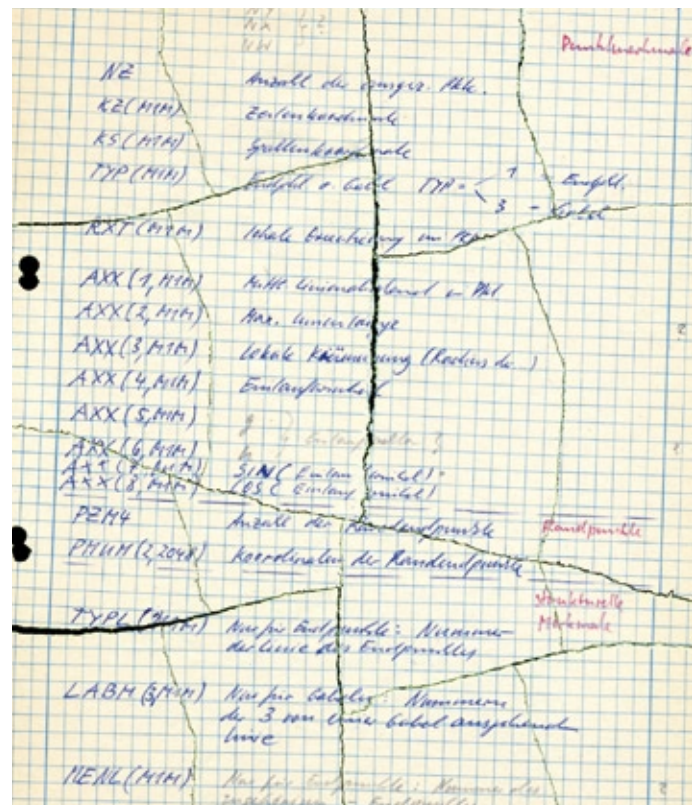 Punktmerkmale
NZ Anzahl der ausgew. Pkte.
KZ(M1M) Zeilenkoordinate
KS(M1M) Spaltenkoordinate
TYP(M1M) Endpkt o. Gabel TYP = 1 Endpkt.
3 - Gabel
RXT(M1M) lokale
AXX(1,M1M) Mittl. Linienabstand
AXX(2,M1M) Max. Linienlänge
AXX(3,M1M) lokale Krümmung (Radius d..)
AXX(4,M1M) Einlaufwinkel
AXX(5,M1M)
AXX(6,M1M)
AXX(7,M1M) SIN( Einlaufwinkel)
AXX(8,M1M) COS( Einlaufwinkel)
PZM4 Anzahl der Randendpunkte Randpunkte
PMUM(2,2048) Koordinaten der Randendpunkte
strukturelle
Merkmale
TYPL(M1M) Nur für Endpunkte: Nummer
der Linie des Endpunktes
LABM(3,M1M) Nur für Gabeln: Nummern
der 3 von einer Gabel ausgehend
Linie
MENL(M1M) Nur für Endpunkte: Nummer des